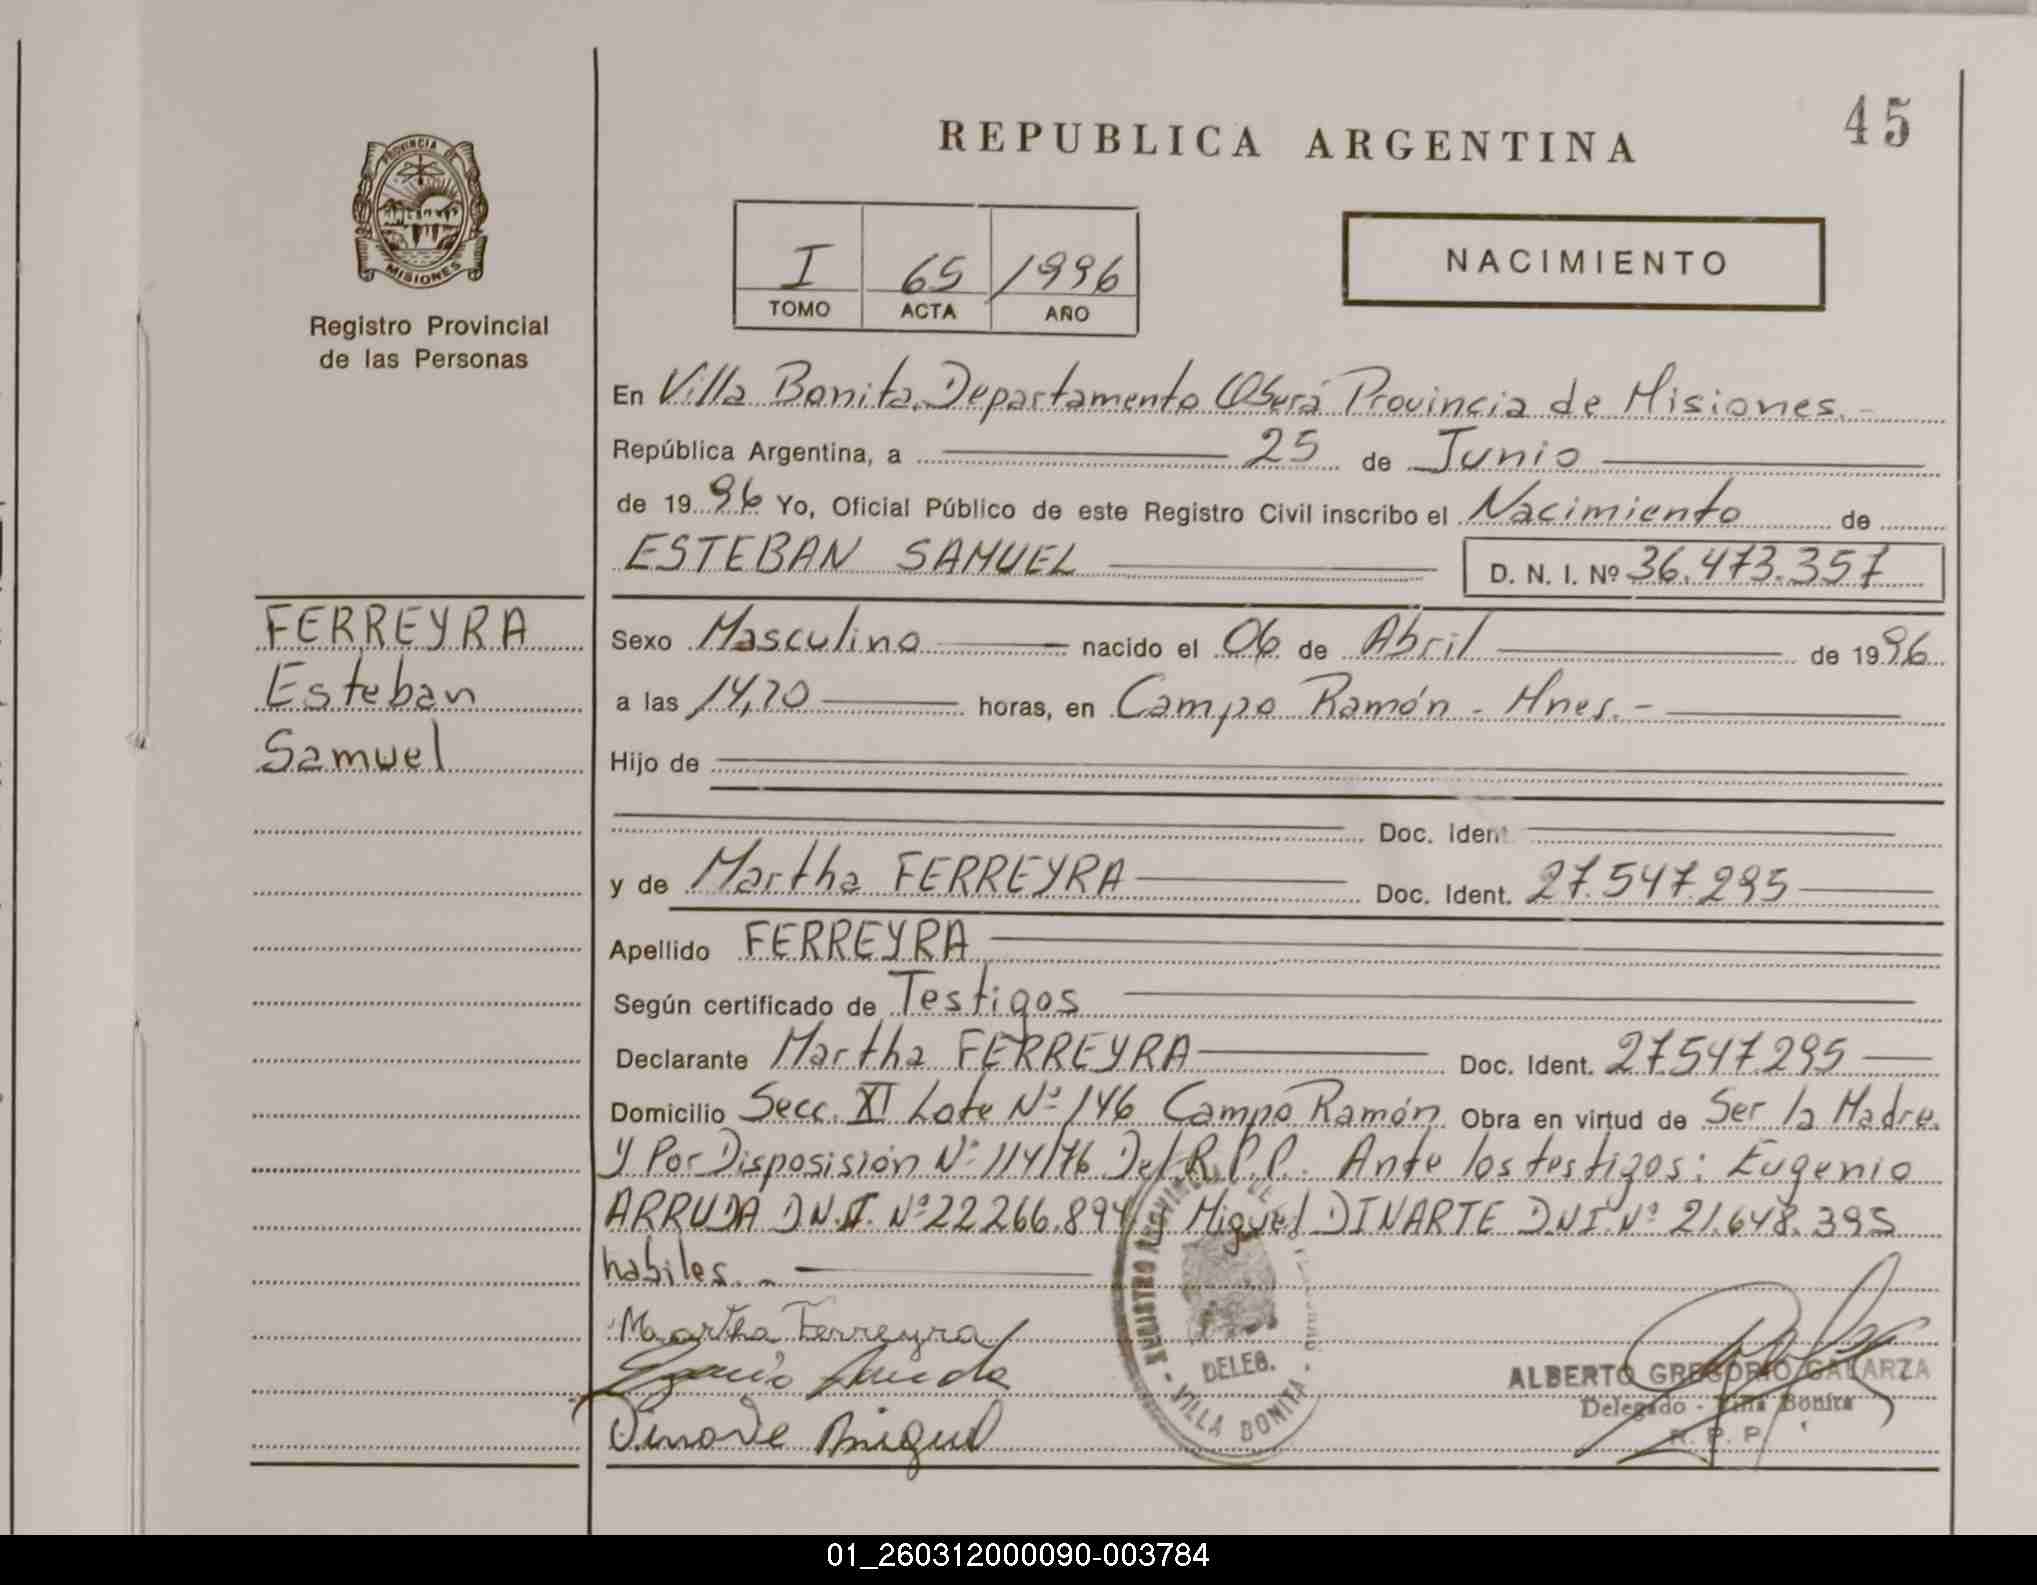 45
REPUBLICA ARGENTINA
PROVINCIA DE
MISIONES
Registro Provincial
de las Personas
I 65 1996
TOMO ACTA AÑO
NACIMIENTO
En Villa Bonita Departamento Oberá Provincia de Misiones.-
República Argentina, a 25 de Junio
de 1996 Yo, Oficial Público de este Registro Civil inscribo el Nacimiento de
ESTEBAN SAMUEL D. N. I. Nº 36.473.357
FERREYRA
Esteban
Samuel
Sexo Masculino nacido el 06 de Abril de 1996
a las 14,20 horas, en Campo Ramón - Mnes.-
Hijo de
Doc. Ident
y de Martha FERREYRA Doc. Ident. 27.547.295
Apellido FERREYRA
Según certificado de Testigos
Declarante Martha FERREYRA Doc. Ident. 27.547.295
Domicilio Secc. XI Lote Nº 146 Campo Ramón Obra en virtud de Ser la Madre
y Por Disposisión Nº 114/76 Del R.P.P. Ante los testigos: Eugenio
ARRUDA D.N.I. Nº 22.266.894 Miguel DINARTE D.N.I. Nº 21.648.395
habiles.-
Martha Ferreyra
Dinarte Miguel
REGISTRO PROVINCIAL DE LAS PERSONAS
DELEG.
- VILLA BONITA -
ALBERTO GREGORIO GALARZA
Delegado - Villa Bonita
R. P. P.
01_260312000090-003784